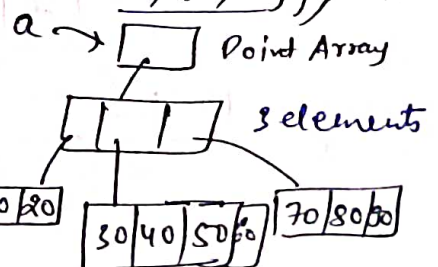 a Point Array
3 elements
20 30 40 50 60 70 80 90